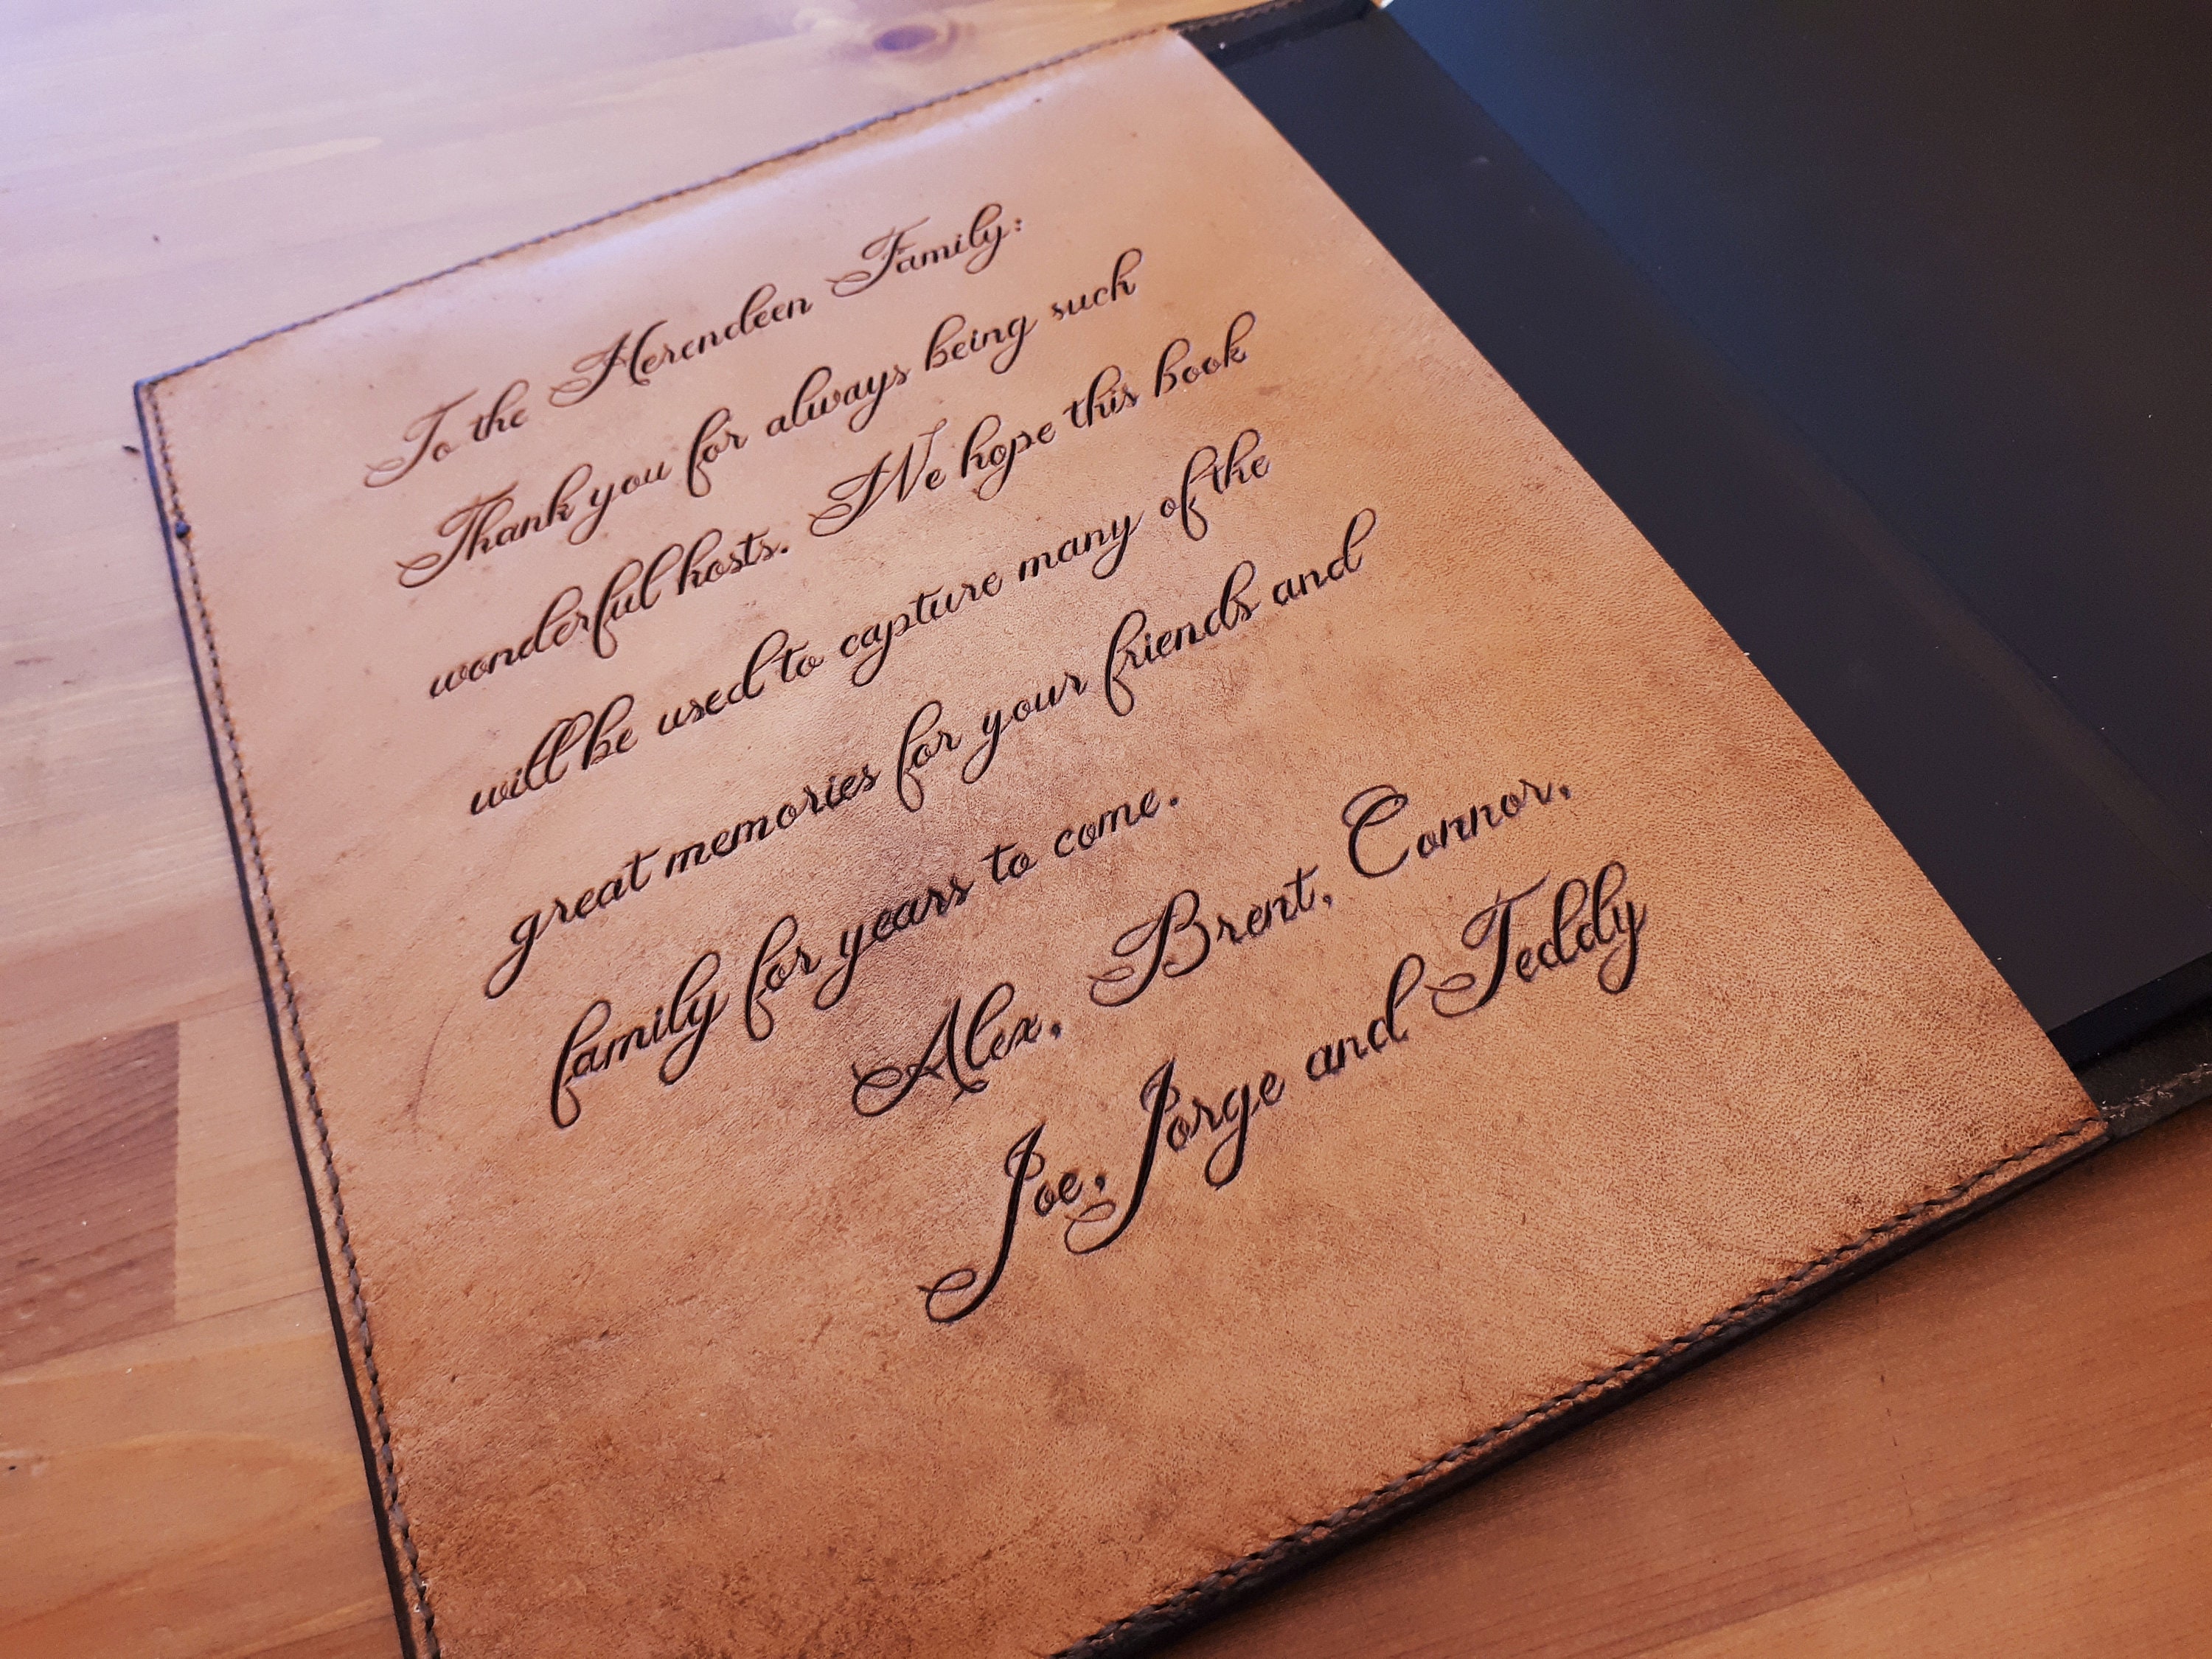 To the Herendeen Family:
Thank you for always being such
wonderful hosts. We hope this book
will be used to capture many of the
great memories for your friends and
family for years to come.
Alex, Brent, Connor,
Joe, Jorge and Teddy